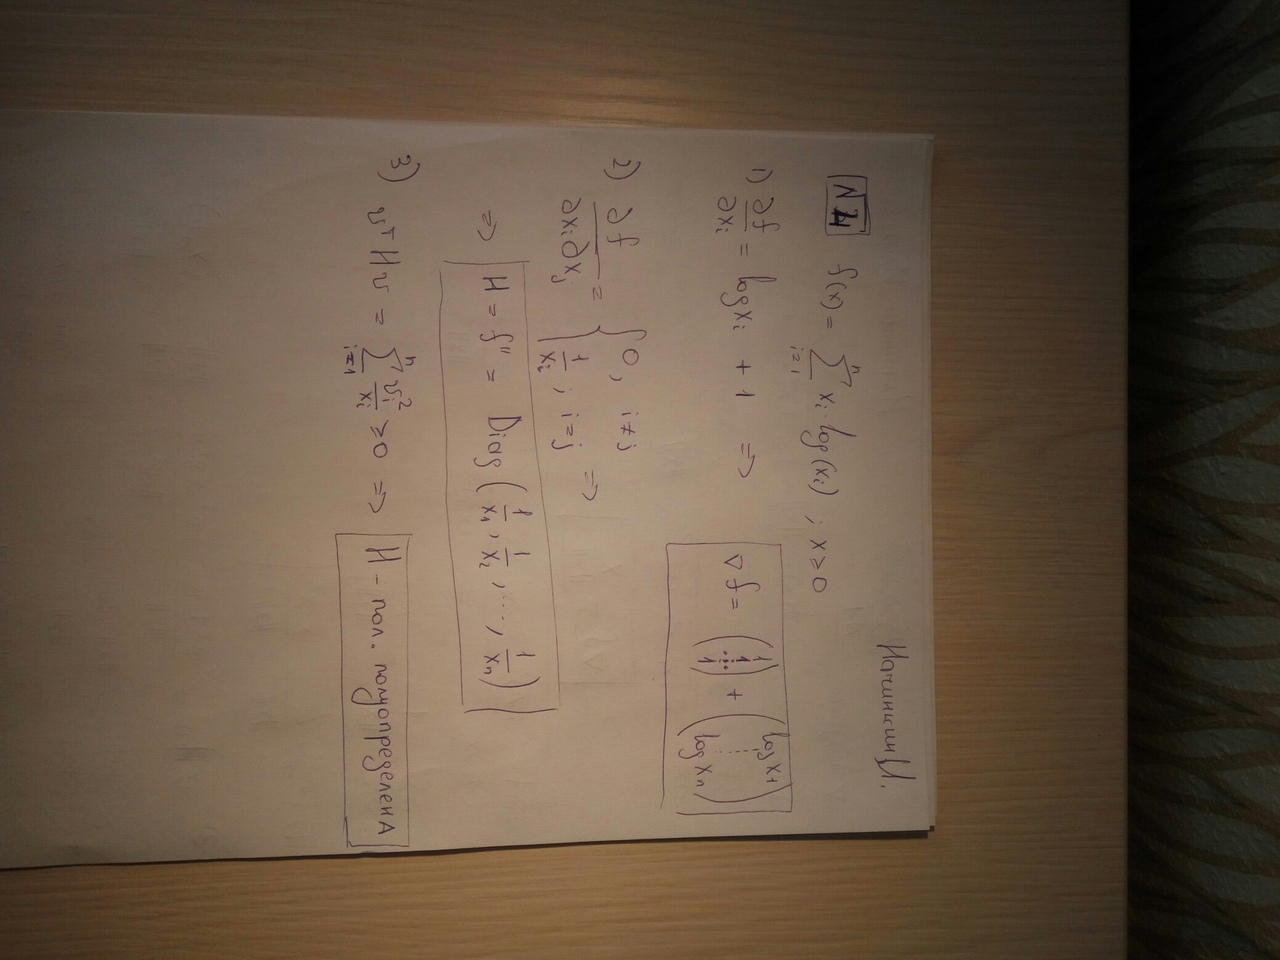 Начинкин И.
N 4 f(x) = ∑_{i=1}^{n} xᵢ · log(xᵢ) ; x ≥ 0
1) ∂f/∂xᵢ = log xᵢ + 1 => ∇f = (1 ⋮ 1) + (log x₁ ⋮ log xₙ)
2) ∂f/∂xᵢ∂xⱼ = { 0, i ≠ j ; 1/xᵢ, i = j =>
=> H = f'' = Diag (1/x₁, 1/x₂, ..., 1/xₙ)
3) vᵀHv = ∑_{i=1}^{n} vᵢ²/xᵢ ≥ 0 => H - пол. полуопределенА